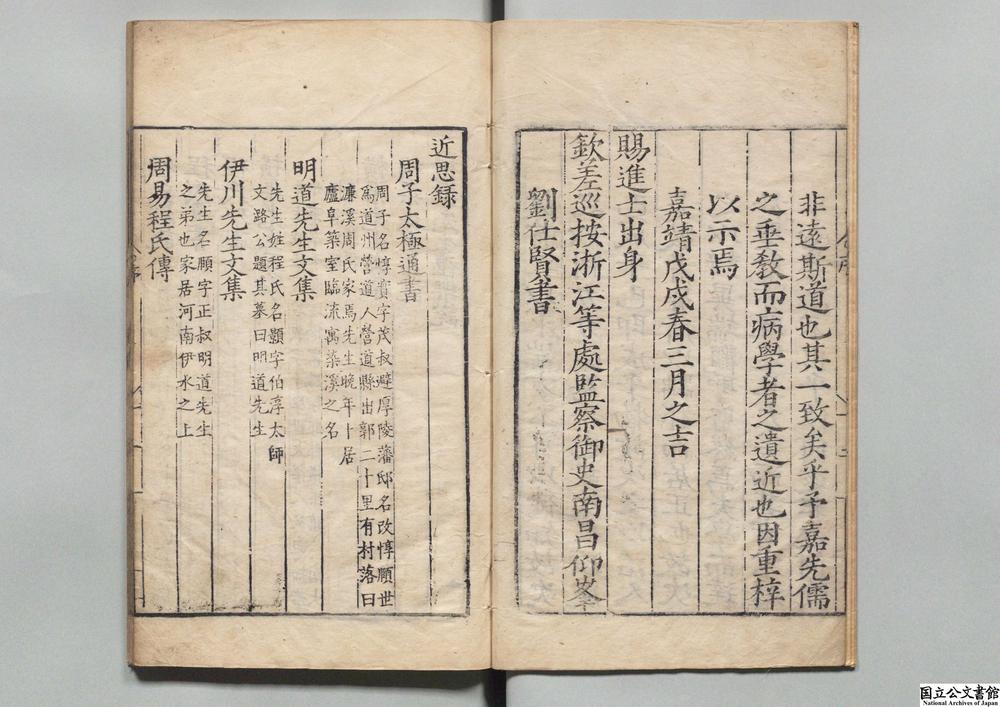 非遠斯道也其一致矣乎予嘉先儒
之垂教而病學者之遺近也因重梓
以示焉
嘉靖戊戌春三月之吉
賜進士出身
欽差巡按浙江等處監察御史南昌仰峯
劉仕賢書
近思録
周子太極通書
周子名惇實字茂叔避厚陵藩邸名改惇頤世
爲道州營道人營道縣出郭二十里有村落曰
濂溪周氏家焉先生晚年卜居
廬阜築室臨流寓濂溪之名
明道先生文集
先生姓程氏名顥字伯淳太師
文路公題其墓曰明道先生
伊川先生文集
先生名頤字正叔明道先生
之弟也家居河南伊水之上
周易程氏傳
国立公文書館
National Archives of Japan